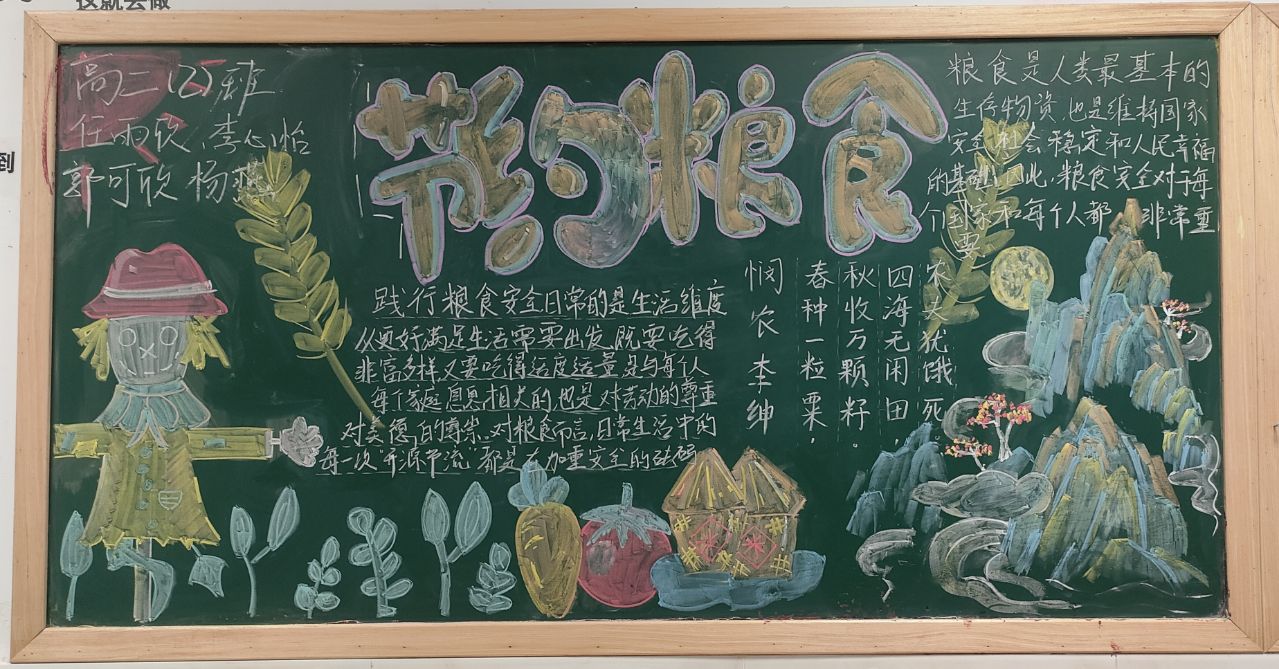 这就会做
到
高二(2)班
任雨欣 李心怡
郭可欣 杨燕
节约粮食
粮食是人类最基本的
生存物资,也是维持国家
安全,社会稳定和人民幸福
的基础,因此,粮食安全对于每
个国家和每个人都 非常重
要
践行粮食安全日常的是生活维度
从更好满足生活需要出发,既要吃得
非富多样,又要吃得适度适量,是与每个人
每个家庭息息相关的,也是对劳动的尊重
对美德的尊崇。对粮食而言,日常生活中的
每一次“开源节流”都是在加重安全的砝码
悯农 李绅
春种一粒粟,
秋收万颗籽。
四海无闲田,
农夫犹饿死。